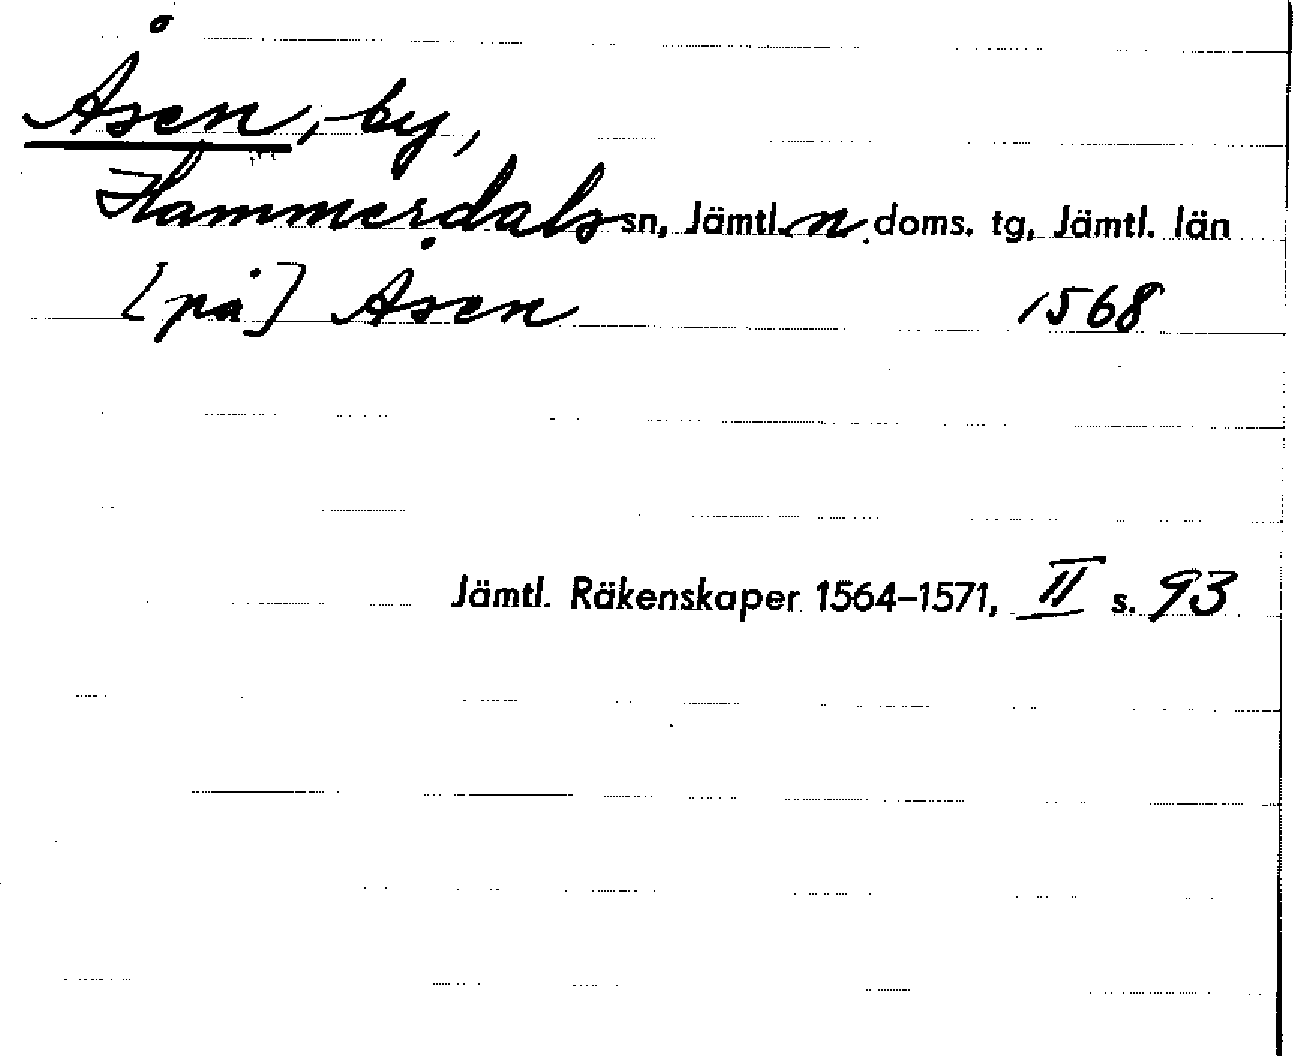 Åsen, by,
Hammerdals sn, Jämtl. n doms. tg, Jämtl. län
[på] Åsen 1568
Jämtl. Räkenskaper 1564-1571, II s. 93